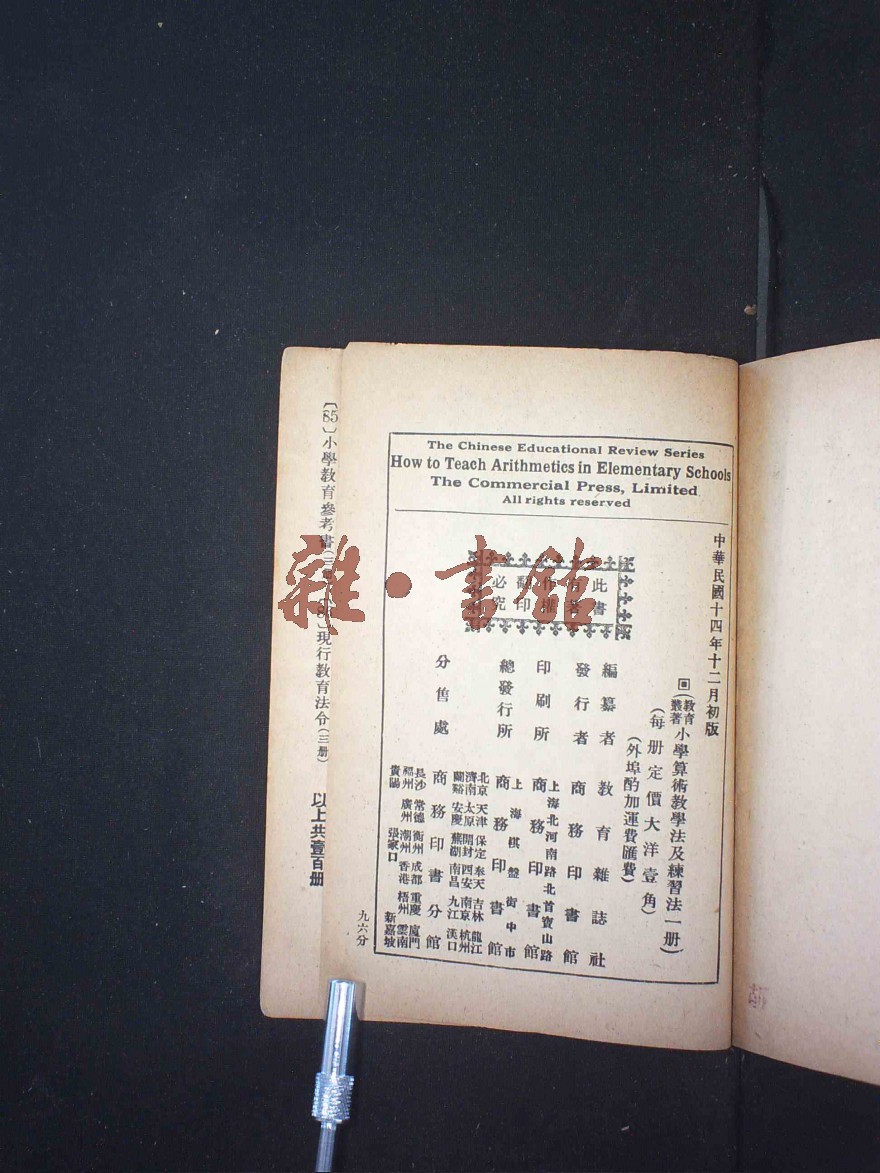 The Chinese Educational Review Series
How to Teach Arithmetics in Elementary Schools
The Commercial Press, Limited
All rights reserved
中華民國十四年十二月初版
(教育叢著小學算術教學法及練習法一册)
(每册定價大洋壹角)
(外埠酌加運費匯費)
此書
有著
作權
翻印
必究
編纂者 教育雜誌社
發行者 商務印書館
印刷所 上海北河南路北首寶山路 商務印書館
總發行所 上海棋盤街中市 商務印書館
分售處 商務印書分館
北京 天津 保定 奉天 吉林 龍江
濟南 太原 開封 西安 南京 杭州
蘭谿 安慶 蕪湖 南昌 九江 漢口
長沙 常德 衡州 成都 重慶 廈門
福州 廣州 潮州 香港 梧州 雲南
貴陽 張家口 新嘉坡
九六分
〔85〕小學教育參考書(三 現行教育法令(三册)
以上共壹百册
雜·書館